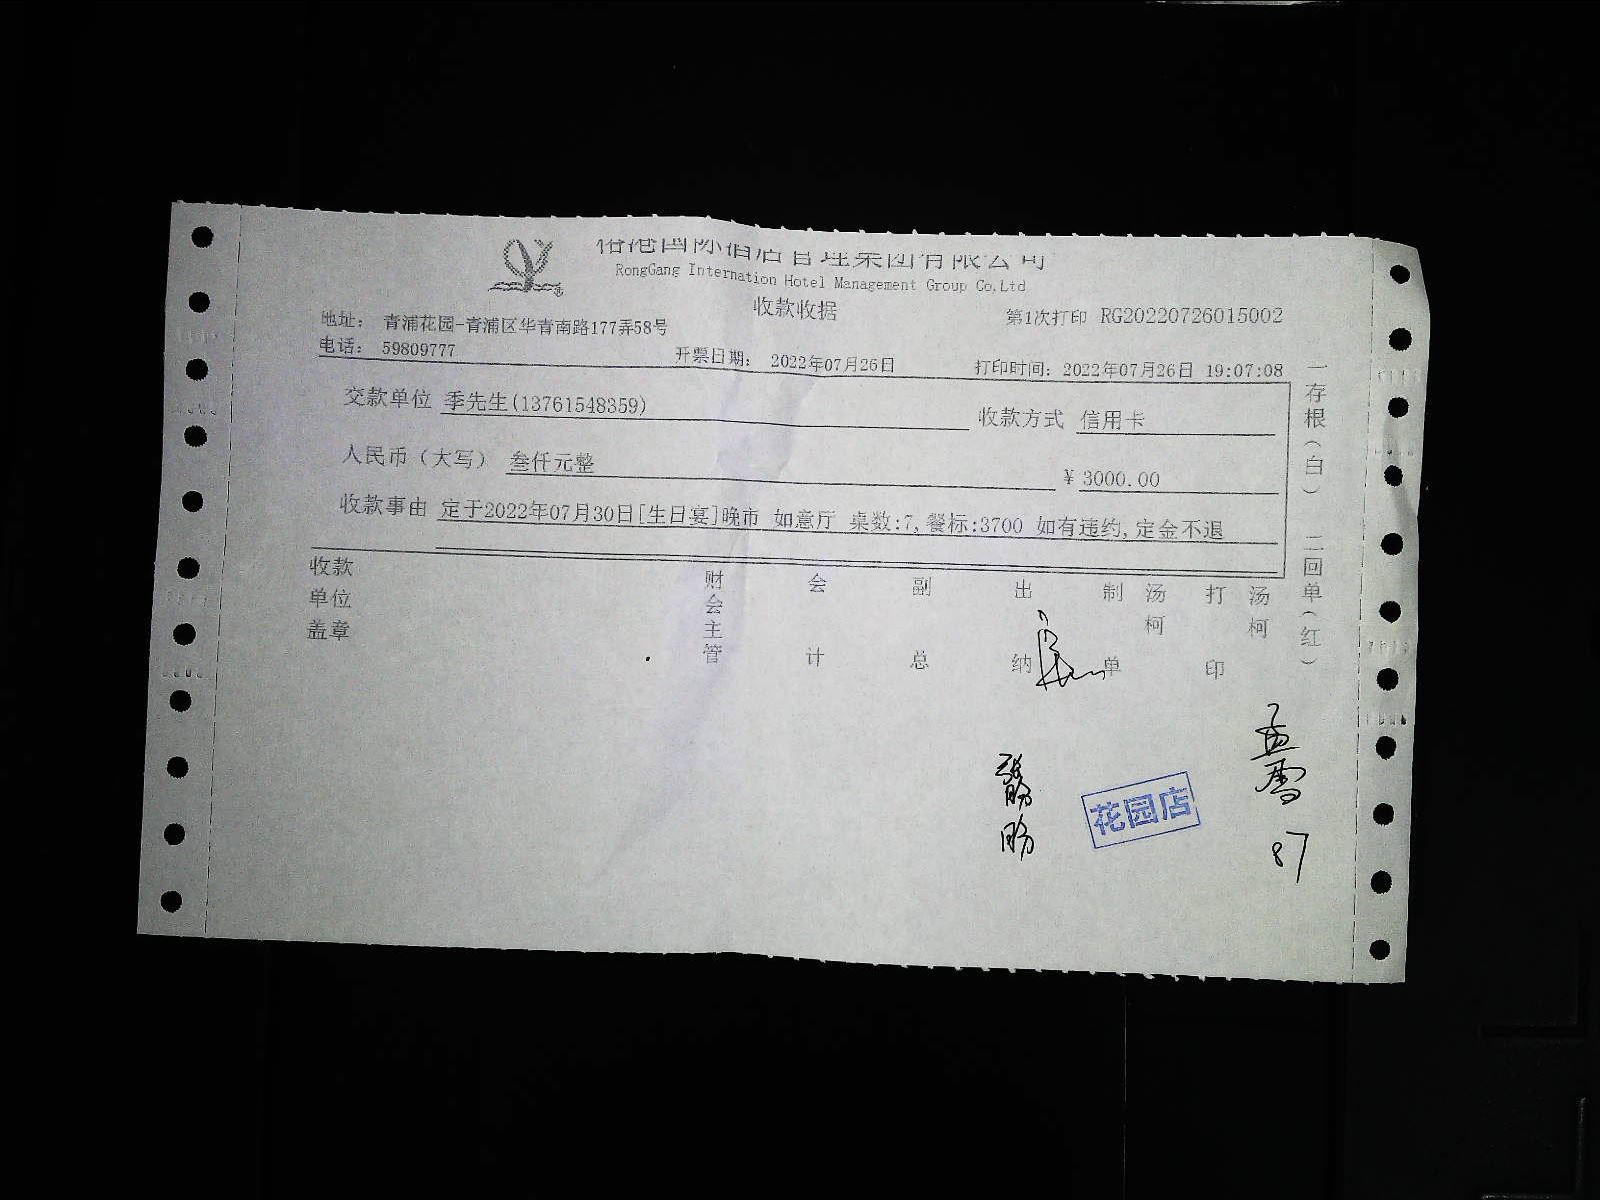 榕港国际酒店管理集团有限公司
RongGang Internation Hotel Management Group Co,Ltd
收款收据
第1次打印 RG20220726015002
地址： 青浦花园-青浦区华青南路177弄58号
电话： 59809777
开票日期： 2022年07月26日
打印时间： 2022年07月26日 19:07:08
交款单位 季先生(13761548359)
收款方式 信用卡
人民币（大写） 叁仟元整
¥ 3000.00
收款事由 定于2022年07月30日[生日宴]晚市 如意厅 桌数:7,餐标:3700 如有违约,定金不退
收款单位盖章
财会主管
会计
副总
出纳
制单 汤柯
打印 汤柯
一存根（白） 二回单（红）
孟雪
87
花园店